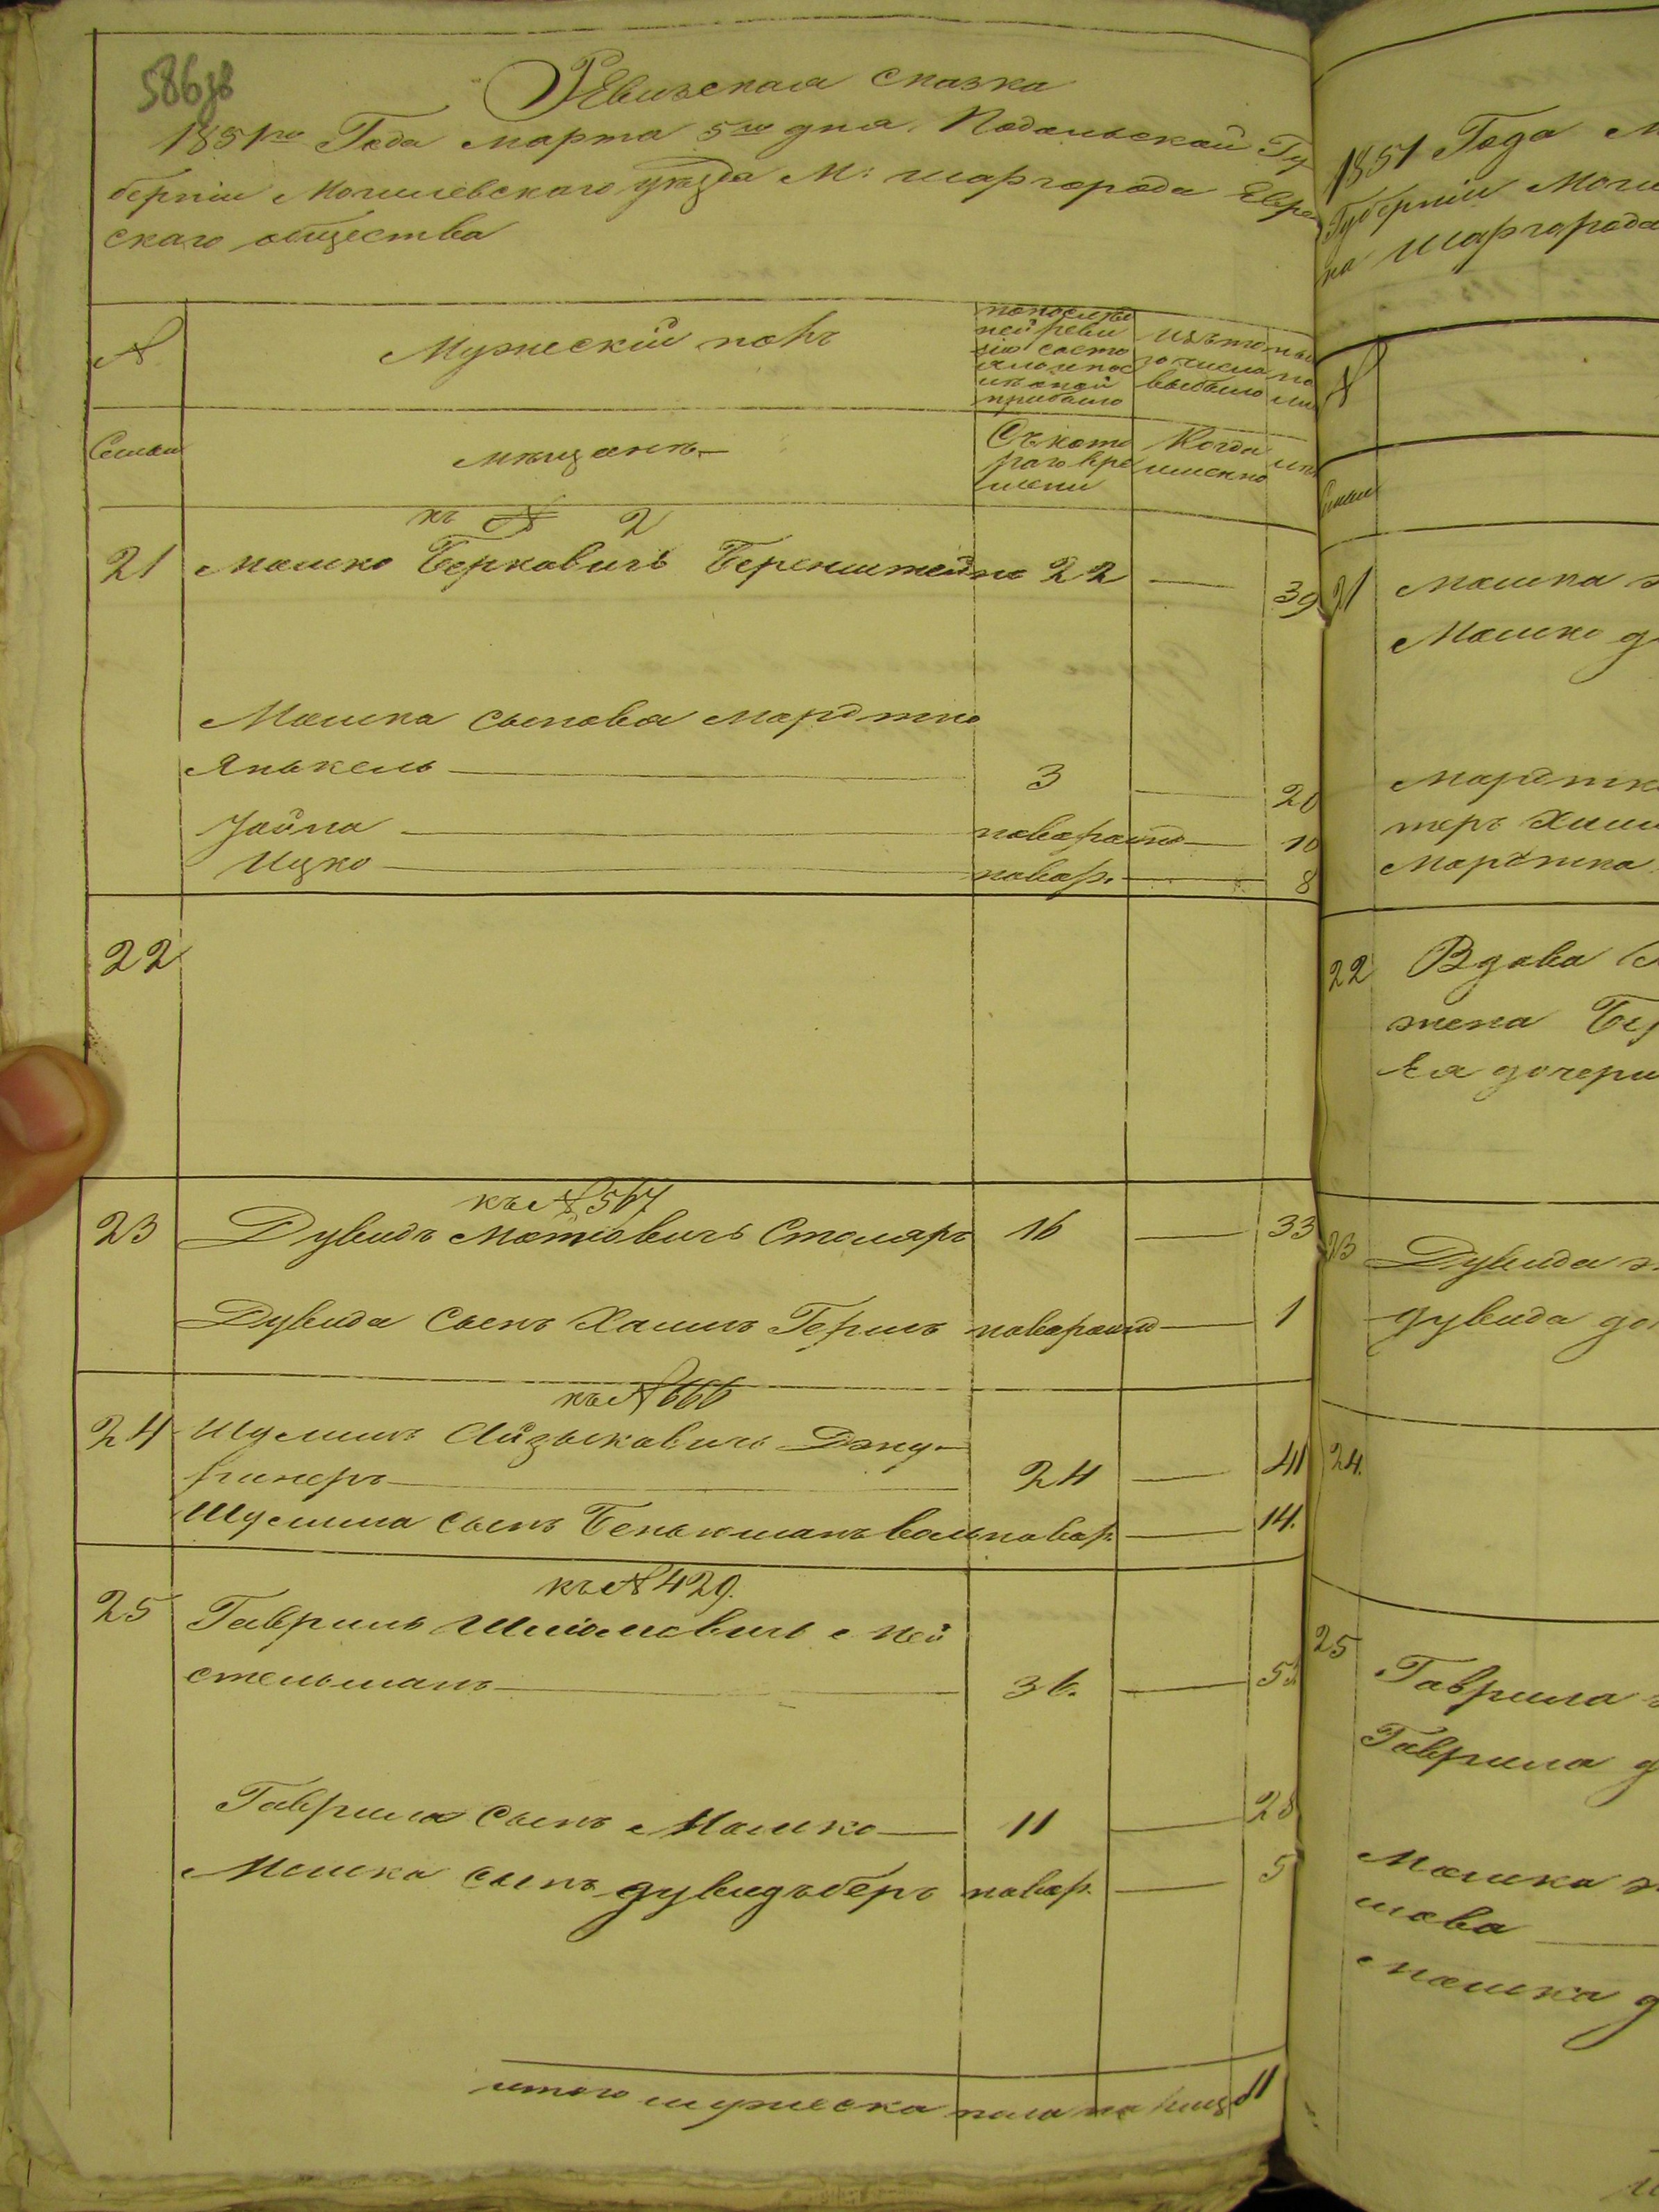 586зв
Ревизская сказка
1851го Года марта 5го дня. Подольской Гу
берніи Могилевскаго уезда М: шаргорода Евре
скаго общества
№
Мужескій полъ
попослед
ней реви
зіи состо
прибыло
изъ то
го числа
выбыло
Семьи
мещане
Съ кото
раго вре
мени
Когда
имѣнно
къ № 2
21 Мошко Берковичъ Беренштейнъ 22 — 39
Мошка сыновья Мордтко
Янькель — 3 — 20
Іойна — новорожд — 10
Ицко — новор. — 8
22
къ № 567
23 Дувидъ Мотіовичъ Столяръ 16 — 33
Дувида сынъ Хаимъ Гершъ новорожд — 1
къ № 666
24 Шулимъ Айзыковичъ Джу-
ринеръ — 24 — 41
Шулима сынъ Беньюминъ вол новор. — 14.
къ № 429.
25 Гаврилъ Шліомовичъ Ней
стельманъ — 36. — 5
Гаврила сынъ Мошко — 11 — 28
Мошка сынъ дувидъ беръ новор. — 5
итого мужеска пола на лицо 11
1851 Года М
Губерніи Моги
ка Шаргорода
№
Семьи
21 Мошка
Мошко д
Мордтк
терь Хим
Мордтка
22 Вдова
жена
Ея дочери
23 Дувида
дувида до
24.
25 Гаврила
Гаврила д
Мошка
мова
Мошка д